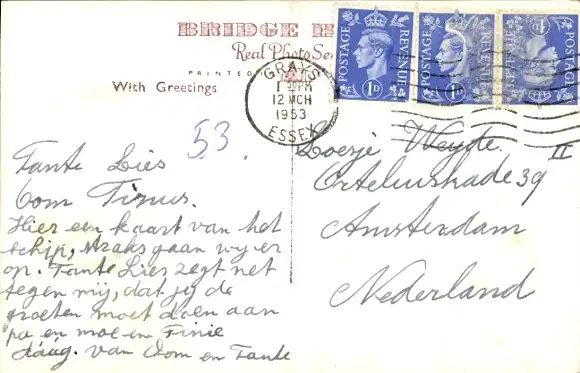 BRIDGE H
Real Photo Se
PRINTED
With Greetings
POSTAGE REVENUE
1D
POSTAGE REVENUE
1D
POSTAGE REVENUE
1D
GRAYS
12 MCH
1953
ESSEX
53
Tante Lies
Oom Tinus.
Hier een kaart van het
schip, straks gaan wy er
op. Tante Lies zegt net
tegen mij, dat jy de
groeten moet doen aan
pa en moe en Finie
dáág. van Oom en Tante
Loesje Weyde.
Orteliuskade 39 II
Amsterdam
Nederland